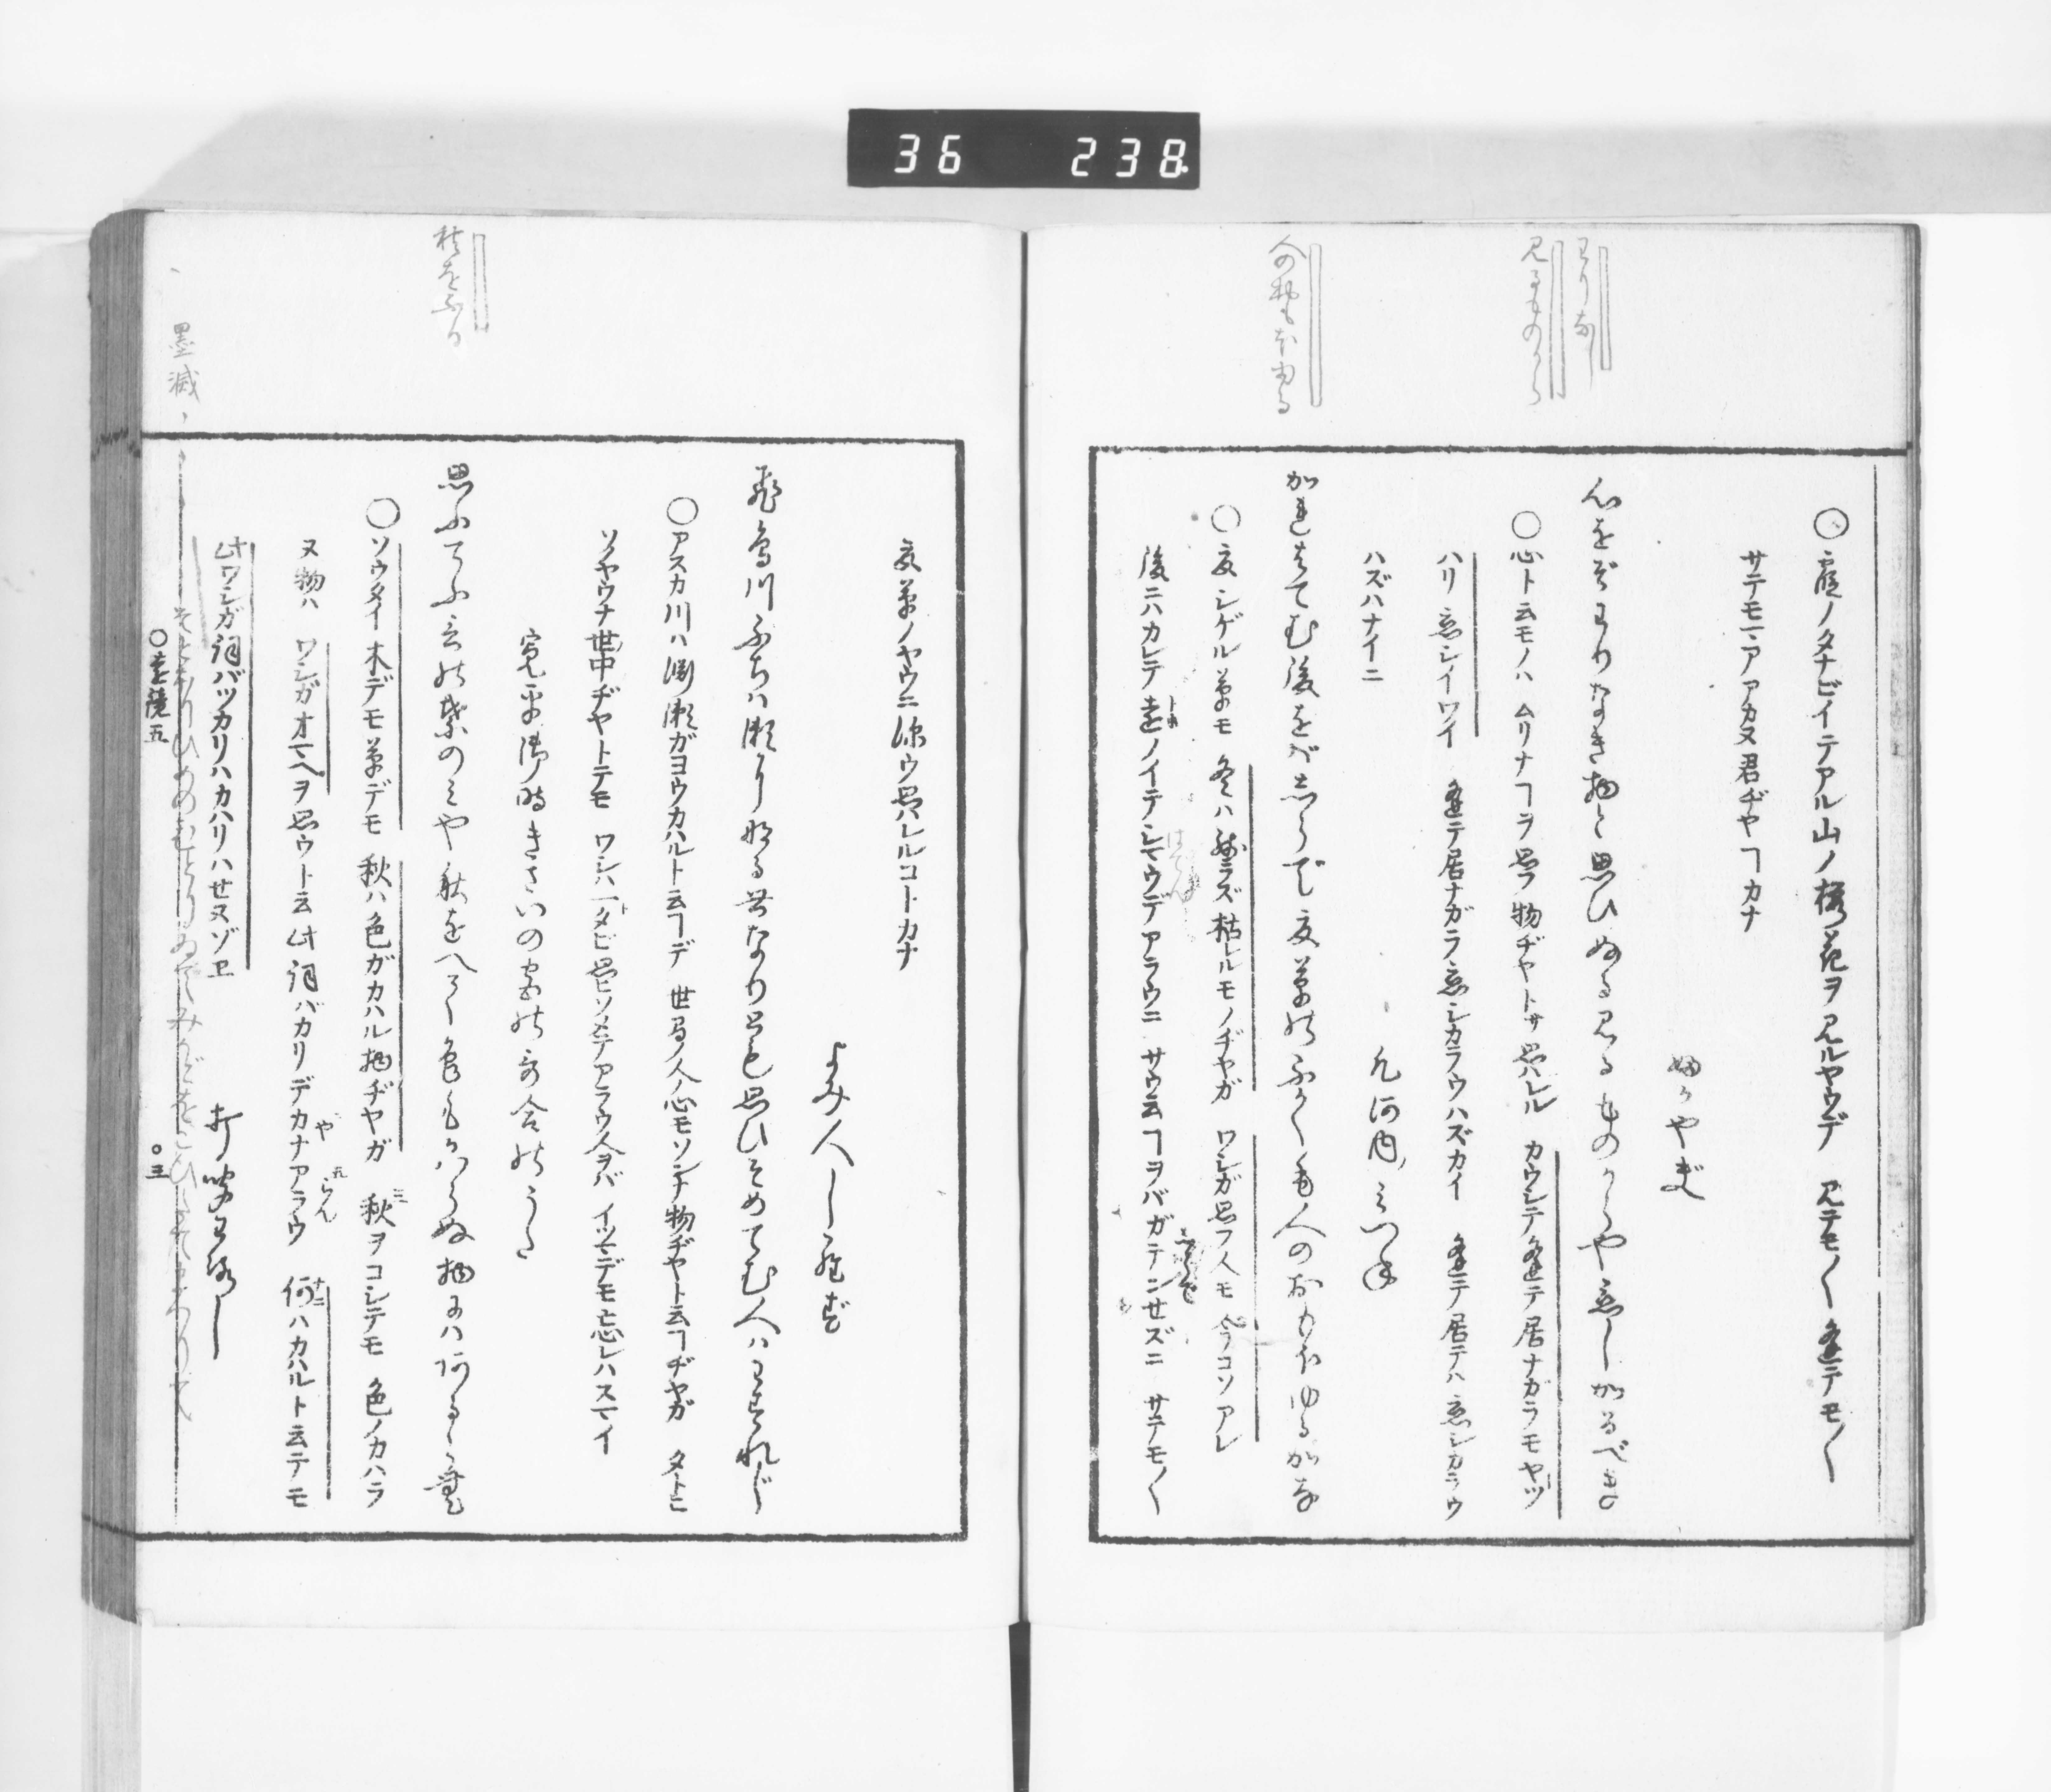 36 238
わりなし
見るものから
人の思ほゆる
○霞ノタナビイテアル山ノ桜花ヲ見ルヤウデ 見テモ〱 逢テモ〱
サテモマアアカヌ君ヂヤヿカナ
ふかやぶ
心をぞわりなき物と思ひぬる見るものからや恋しかるべき
○心ト云モノハ ムリナヿヲ思フ物ヂヤトサ 思ハレル カウシテ逢テ居ナガラモ ヤツ
ハリ 恋シイワイ 逢テ居ナガラ恋シカラウハズカイ 逢テ居テハ恋シカラウ
ハズハナイニ
凡河内みつね
かれはてむ後をば志らで夏草のふかくも人のおもほゆるかな
○夏シゲル草モ 冬ハ残ラズ枯レルモノヂヤガ ワシガ思フ人モ 今コソアレ
後ニハカレテ遠ノイテシマウデアラウニ サウ云ヿヲバガテンセズニ サテモ〱
夏草ノヤウニ深ウ思ハレルコトカナ
よみ人しらず
飛鳥川ふちは瀬になる世なりとも思ひそめてむ人はわすれじ
○アスカ川ハ渕瀬ガヨウカハルト云ヿデ 世界ノ人ノ心モソンナ物ヂヤト云ヿヂヤガ タトヒ
ソノヤウナ世中ヂヤトテモ ワシハ一タビ思ヒソメテアラウ人ヲバ イツマデモ忘レハスマイ
寛平御時きさいの宮の哥合のうた
枝をふる
思ふてふ言の葉のみや秋をへて色もかはらぬ物にはあるらむ
○ソウタイ 木デモ草デモ 秋ハ色ガカハル物ヂヤガ 秋ヲコシテモ 色ノカハラ
ヌ物ハ ワシガオマヘヲ思ウト云此詞バカリデカナアラウ 何ハカハルト云テモ
此ワシガ詞バツカリハカハリハセヌゾヱ 打聞わろし
墨滅
○遠鏡五 ○三